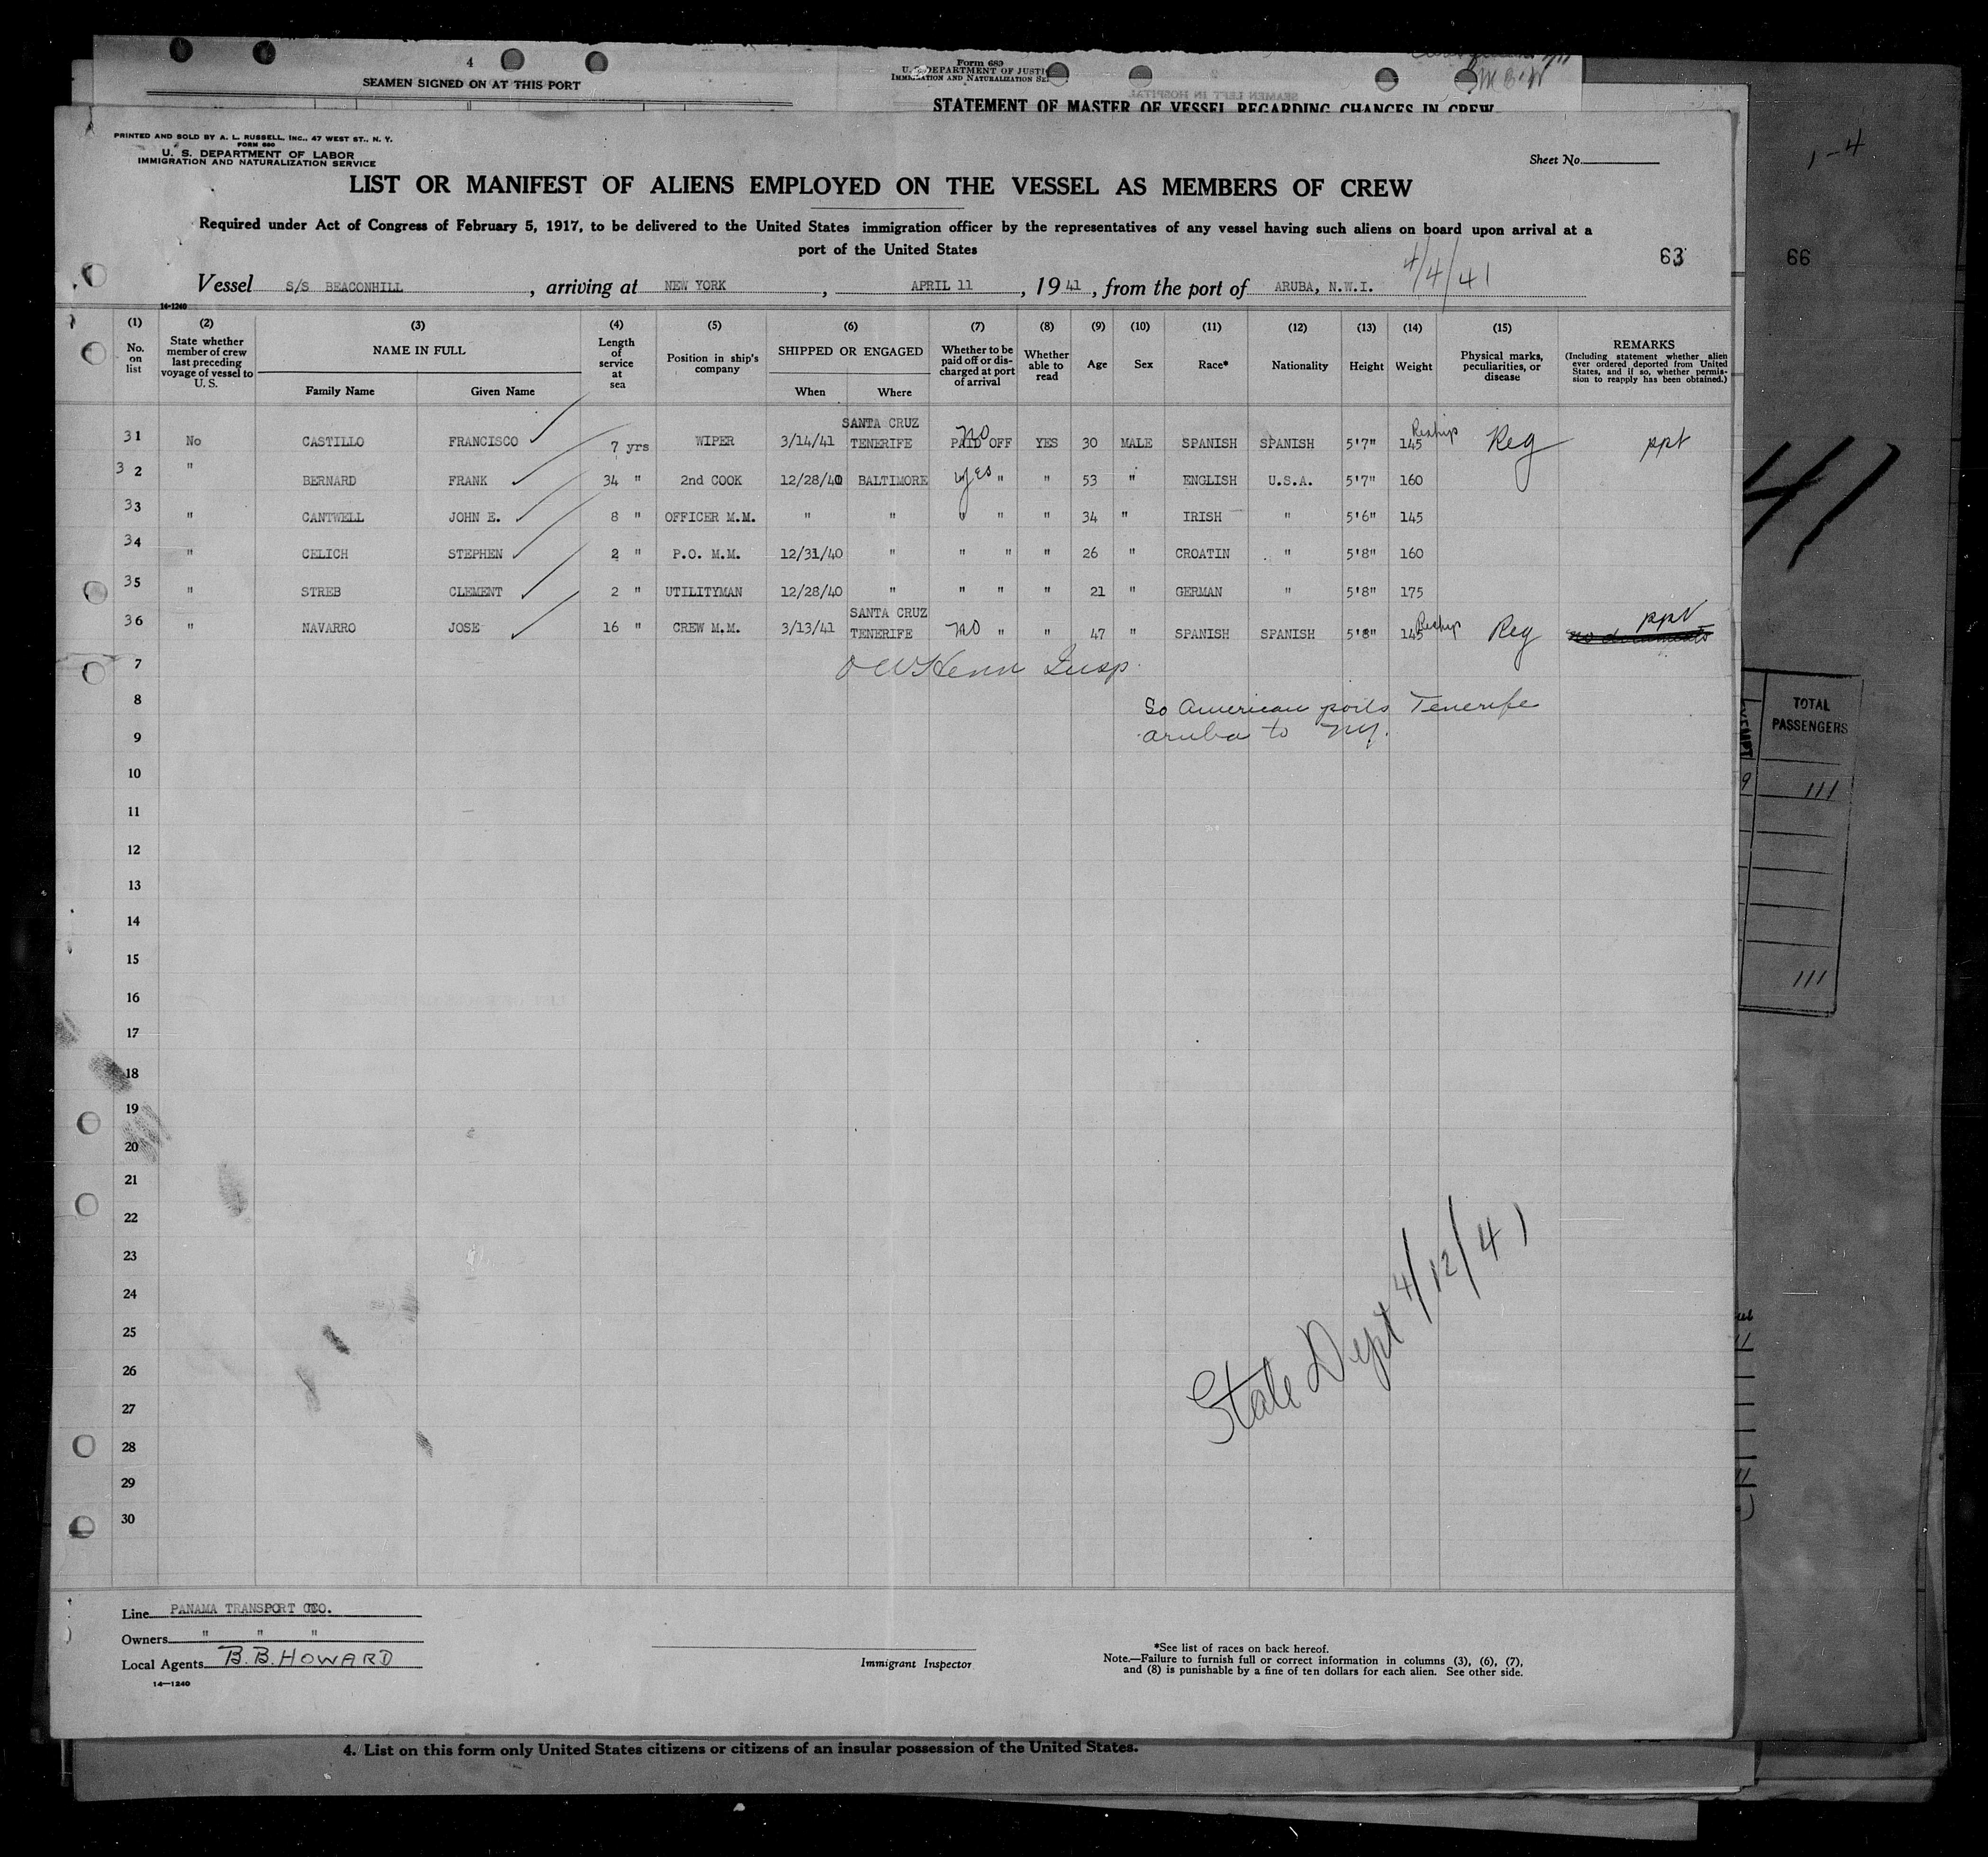 4
SEAMEN SIGNED ON AT THIS PORT
Form 689
U. S. DEPARTMENT OF JUSTI
IMMIGRATION AND NATURALIZATION SE
SEAMEN LEFT IN HOSPITAL
STATEMENT OF MASTER OF VESSEL REGARDING CHANGES IN CREW
1-4
PRINTED AND SOLD BY A. L. RUSSELL, INC., 47 WEST ST., N. Y.
FORM 680
U. S. DEPARTMENT OF LABOR
IMMIGRATION AND NATURALIZATION SERVICE
Sheet No.
LIST OR MANIFEST OF ALIENS EMPLOYED ON THE VESSEL AS MEMBERS OF CREW
Required under Act of Congress of February 5, 1917, to be delivered to the United States immigration officer by the representatives of any vessel having such aliens on board upon arrival at a
port of the United States
63
66
4/4/41
Vessel S/S BEACONHILL, arriving at NEW YORK, APRIL 11, 1941, from the port of ARUBA, N.W.I.
14-1240
(1) (2) (3) (4) (5) (6) (7) (8) (9) (10) (11) (12) (13) (14) (15)
No. on list
State whether member of crew last preceding voyage of vessel to U. S.
NAME IN FULL
Family Name Given Name
Length of service at sea
Position in ship's company
SHIPPED OR ENGAGED
When Where
Whether to be paid off or discharged at port of arrival
Whether able to read
Age
Sex
Race*
Nationality
Height
Weight
Physical marks, peculiarities, or disease
REMARKS
(Including statement whether alien ever ordered deported from United States, and if so, whether permission to reapply has been obtained.)
31 No CASTILLO FRANCISCO 7 yrs WIPER 3/14/41 SANTA CRUZ TENERIFE no PAID OFF YES 30 MALE SPANISH SPANISH 5'7" 145 Reships Reg ppt
32 " BERNARD FRANK 34 " 2nd COOK 12/28/40 BALTIMORE yes " " 53 " ENGLISH U.S.A. 5'7" 160
33 " CANTWELL JOHN E. 8 " OFFICER M.M. " " " " " 34 " IRISH " 5'6" 145
34 " CELICH STEPHEN 2 " P.O. M.M. 12/31/40 " " " " 26 " CROATIN " 5'8" 160
35 " STREB CLEMENT 2 " UTILITYMAN 12/28/40 " " " " 21 " GERMAN " 5'8" 175
36 " NAVARRO JOSE 16 " CREW M.M. 3/13/41 SANTA CRUZ TENERIFE no " " 47 " SPANISH SPANISH 5'8" 145 Reships Reg ppt no documents
7
8
So American ports Tenerife
9
aruba to NY.
10
11
12
13
14
15
16
17
18
19
20
21
22
23
24
25
26
27
28
29
30
State Dept 4/12/41
41
TOTAL
PASSENGERS
EXEMPT
9
111
111
Line PANAMA TRANSPORT CO.
Owners " " "
Local Agents B. B. HOWARD
14—1240
Immigrant Inspector
*See list of races on back hereof.
Note.—Failure to furnish full or correct information in columns (3), (6), (7),
and (8) is punishable by a fine of ten dollars for each alien. See other side.
4. List on this form only United States citizens or citizens of an insular possession of the United States.